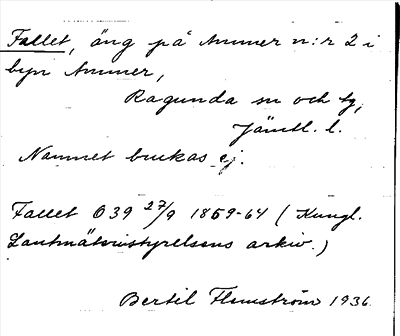 Fallet, äng på Ammer n:r 2 i
byn Ammer,
Ragunda sn och tg,
Jämtl. l.
Namnet brukas ej.
Fallet O39 27/9 1859-64 (Kungl.
Lantmäteristyrelsens arkiv.)
Bertil Flemström 1936.